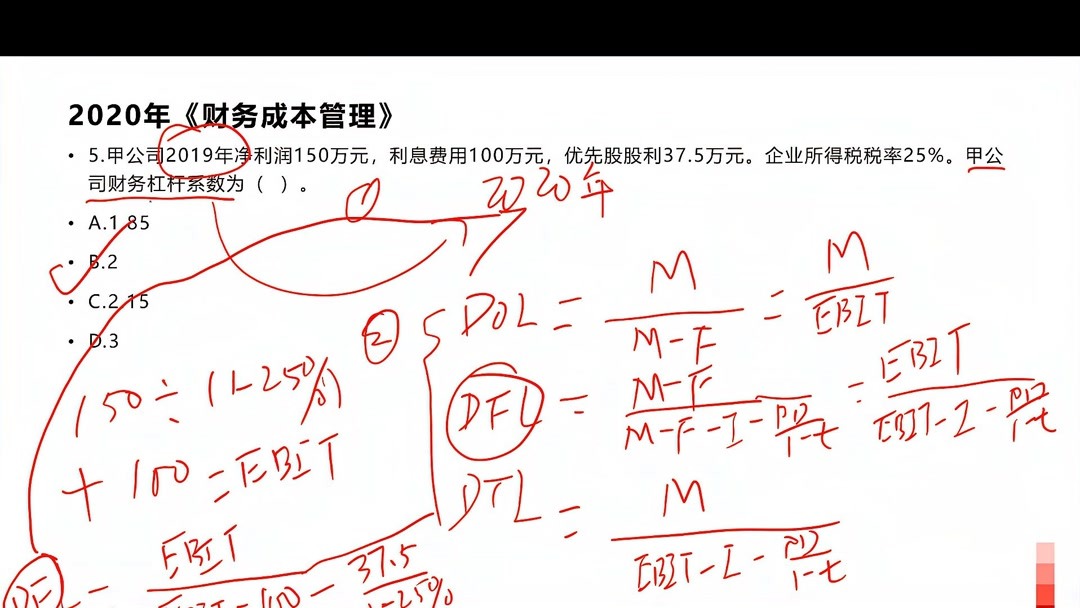 2020年《财务成本管理》
• 5.甲公司2019年净利润150万元，利息费用100万元，优先股股利37.5万元。企业所得税税率25%。甲公
司财务杠杆系数为（ ）。
① 2020年
• A.1.85
• B.2
• C.2.15
• D.3
② DOL = M / M-F = M / EBIT
DFL = M-F / M-F-I-PD/1-t = EBIT / EBIT-I-PD/1-t
DTL = M / EBIT-I-PD/1-t
150÷(1-25%)
+100=EBIT
= EBIT / EBIT-100-37.5/1-25%